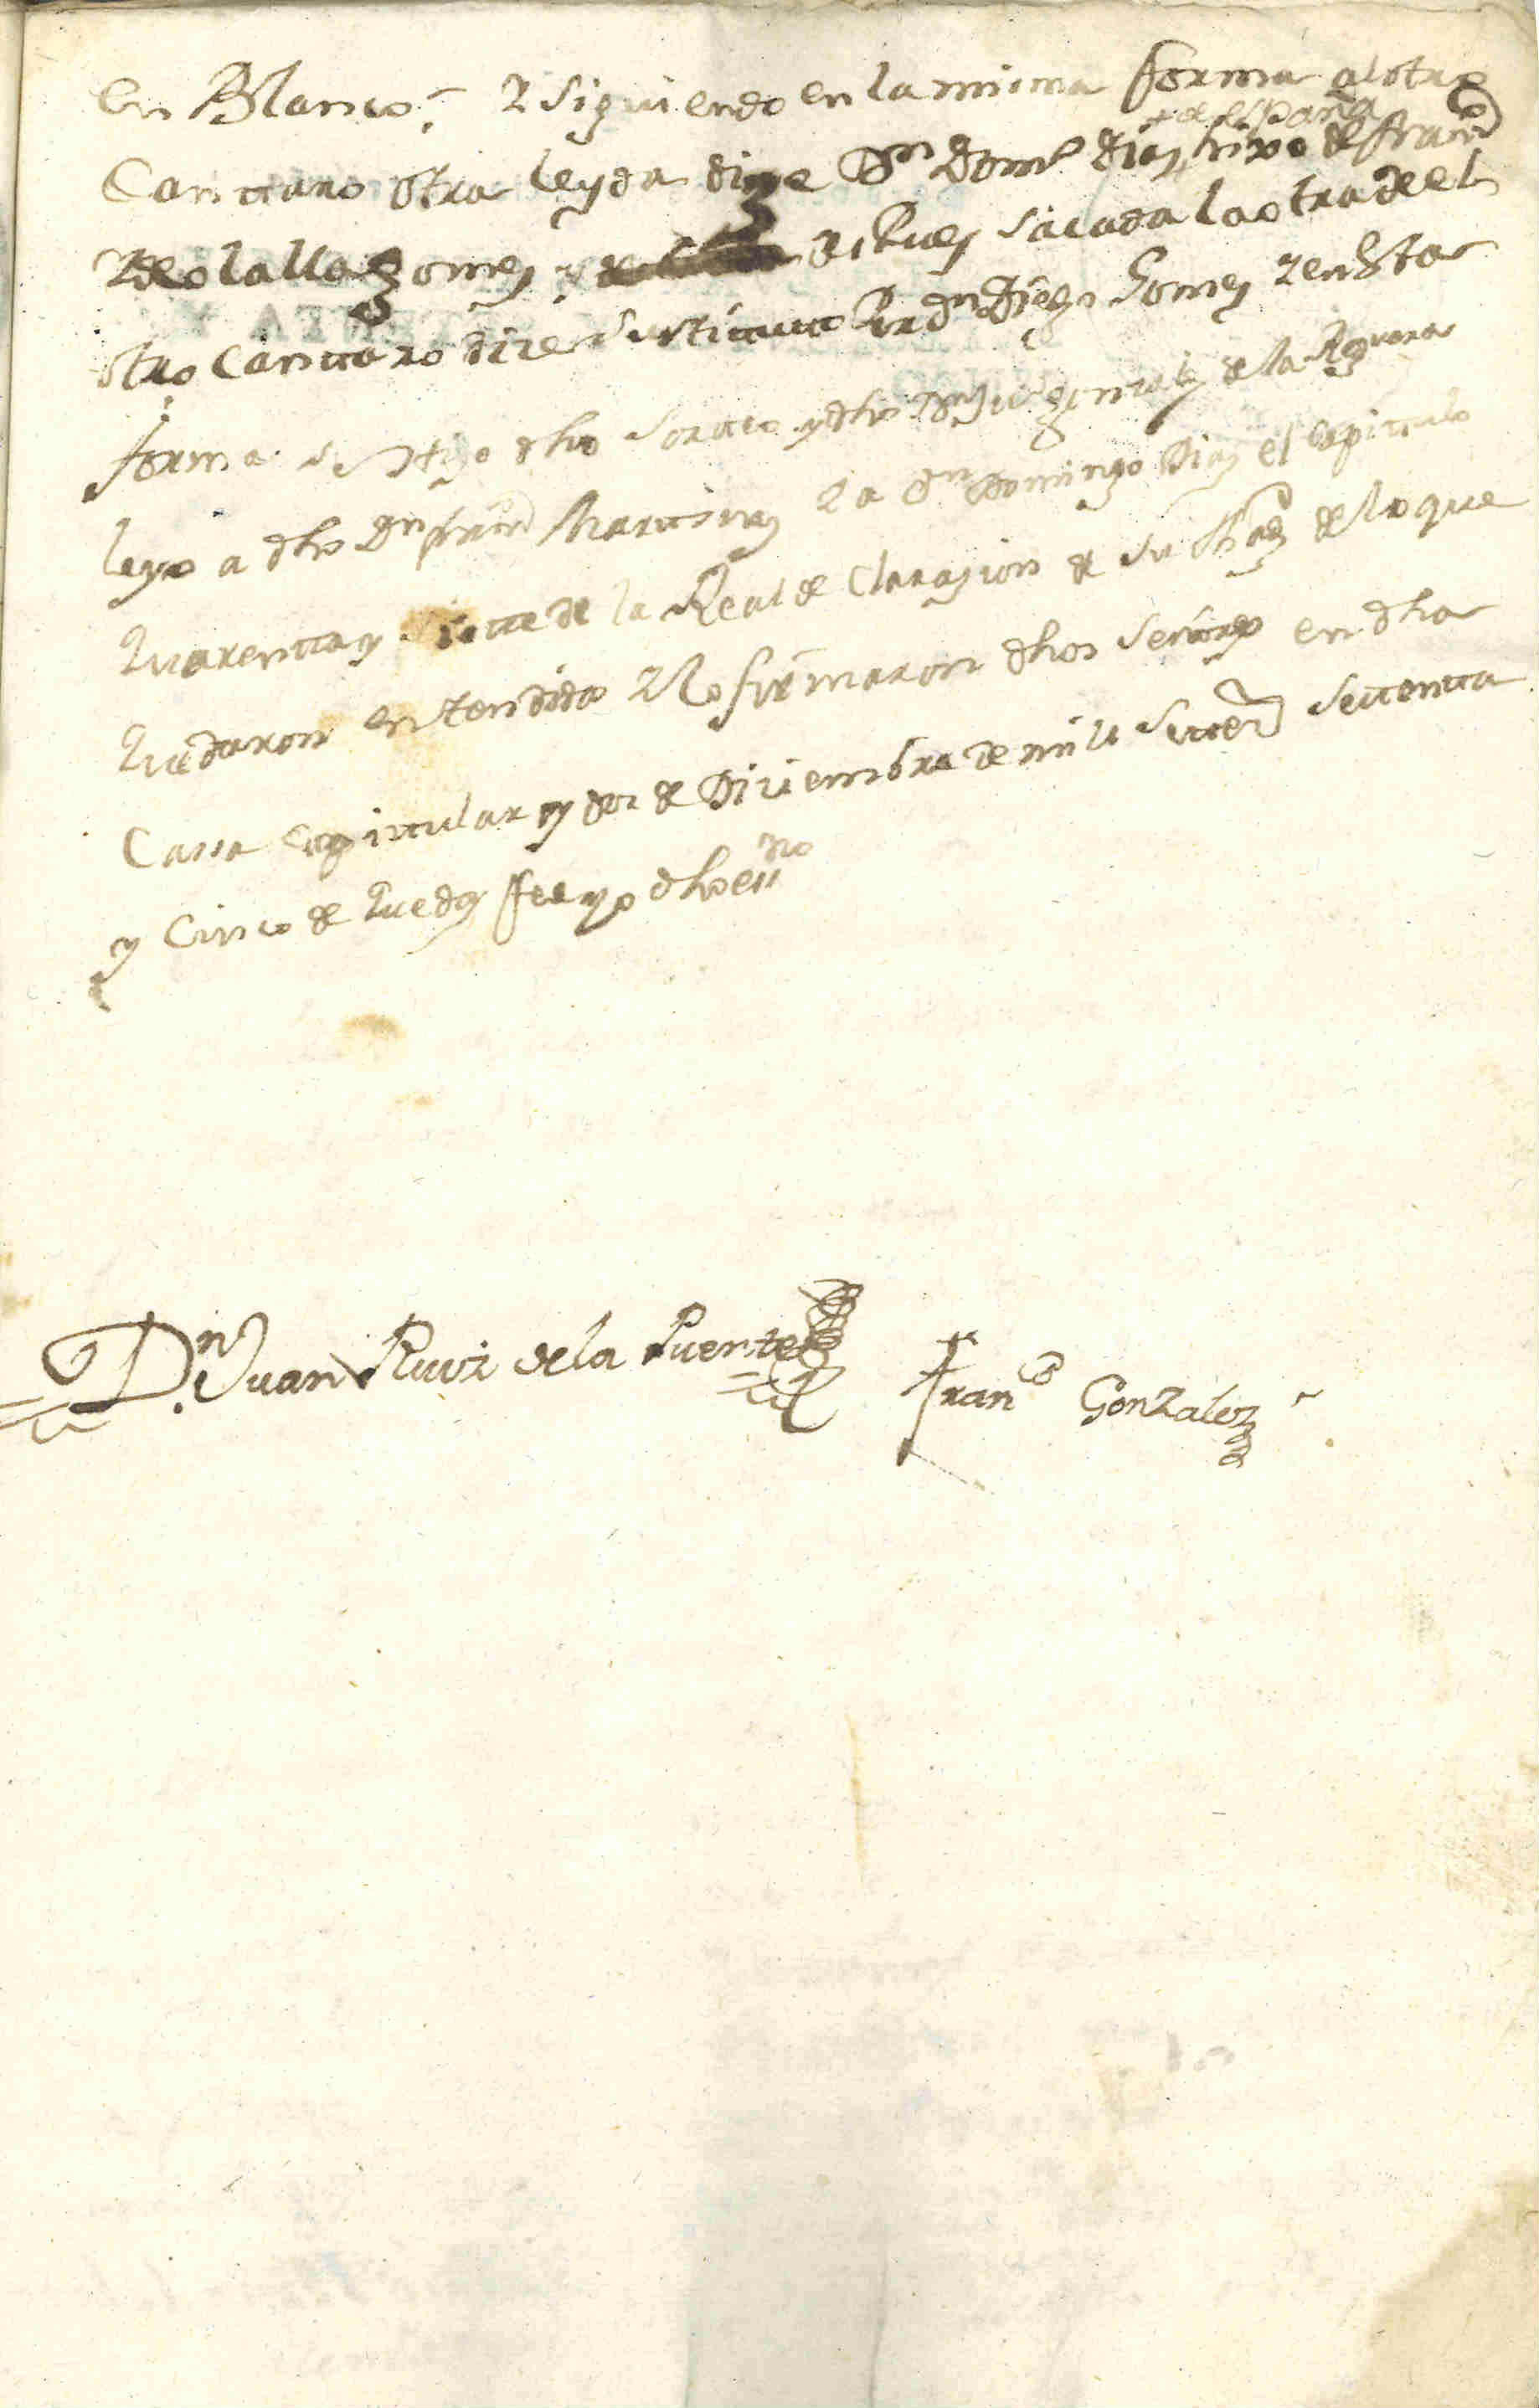 en Blanco. 2 siguiendo en la misma forma al otro
de españa
Canttaro otra leyda dize Dn Domo Diaz hixo de Franco
2 de olalla gomez, Despues sacada la otra de el
otro Canttaro dice sustituto Por Dn Diego Gomez 2 en esta
forma se hizo dho sortteo y dho Dn gonzalez de la
leyo a dho Dn Franco Marttinez 2 a Dn Domingo Diaz el Capittulo
quarentta y siette de la Real de Clarazion de su Magd de lo que
quedaron entendidos 2 lo firmaron dhos señores en dha
Cassa Capittular y dos de Diziembre de mill settecos settentta
y Cinco de que doy fee yo dho essno
Dn Juan Ruiz de la Puente
Franco Gonzalez